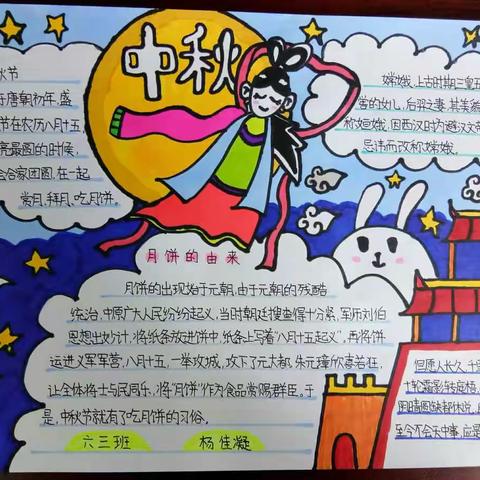 中秋
秋节
于唐朝初年,盛
节在农历八月十五,
亮最圆的时候
合家团圆,在一起
赏月、拜月、吃月饼。
嫦娥,上古时期三皇五
喾的女儿,后羿之妻,其美貌
称姮娥,因西汉时为避汉文帝
忌讳而改称嫦娥。
月饼的由来
月饼的出现始于元朝,由于元朝的残酷
统治,中原广大人民纷纷起义,当时朝廷搜查得十分紧,军师刘伯
思想出妙计,将纸条放进饼中,纸条上写着“八月十五起义”,再将饼
运进义军军营,八月十五,一举攻城,攻下了元大都,朱元璋欣喜若狂,
让全体将士与民同乐,将“月饼”作为食品赏赐群臣。于
是,中秋节就有了吃月饼的习俗。
六三班
杨佳凝
但愿人长久,千里
十轮霜影转庭梧,
阴晴圆缺都休说,
至今不会天中事,应是